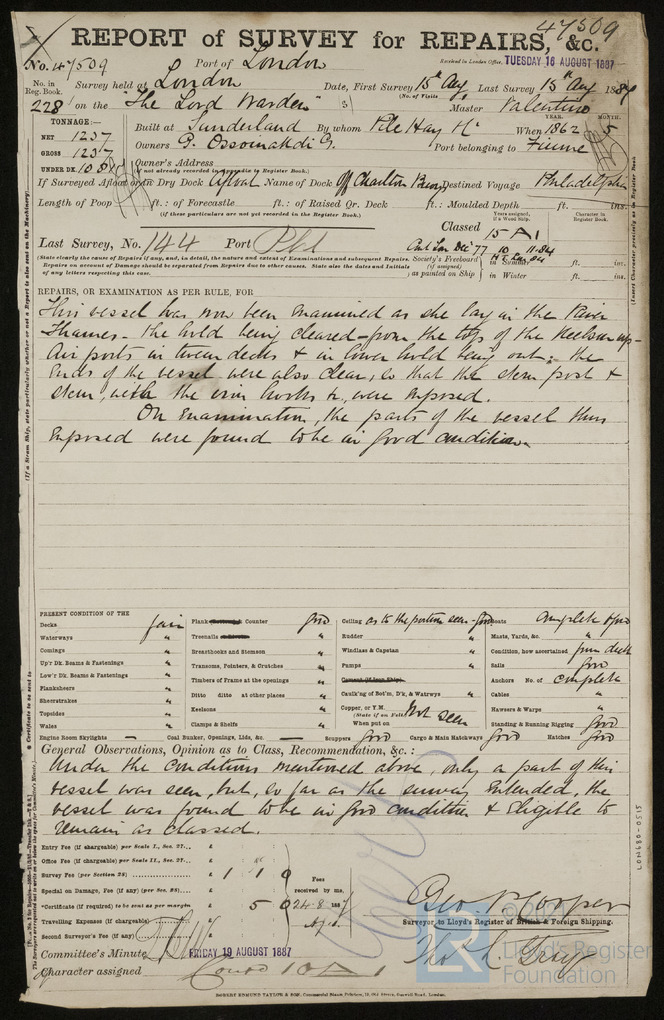 47509
REPORT of SURVEY for REPAIRS, &c.
No. 47509 Port of London Received in London Office, TUESDAY 16 AUGUST 1887
No. in Reg. Book. Survey held at London Date, First Survey 15th Aug, Last Survey 15th Aug 1887
(No. of Visits
228 on the "The Lord Warden" Master Valentino
TONNAGE:— YEAR. MONTH.
NET 1237 Built at Sunderland By whom Pile Hay When 1862 5
GROSS 1237 Owners G. Port belonging to Fiume
UNDER DK. 108 Owner's Address
(if not already recorded in Appendix to Register Book.)
If Surveyed Afloat or in Dry Dock Afloat Name of Dock Off Charlton Destined Voyage Philadelphia
Length of Poop ft.: of Forecastle ft.: of Raised Qr. Deck ft.: Moulded Depth ft. ins.
(if these particulars are not yet recorded in the Register Book.)
Years assigned, if a Wood Ship. Character in Register Book.
Classed 15 A1
Last Survey, No. 144 Port Phl
Dec 77 10 11.84
(State clearly the cause of Repairs if any, and, in detail, the nature and extent of Examinations and subsequent Repairs.
Repairs on account of Damage should be separated from Repairs due to other causes. State also the dates and Initials
of any letters respecting this case.
Society's Freeboard (if assigned) as painted on Ship
in Summer ft. ins.
in Winter ft. ins.
REPAIRS, OR EXAMINATION AS PER RULE, FOR
This vessel has now been examined as she lay in the River
Thames - the hold being cleared - from the top of the Keelson up -
Air ports in tween decks & in lower hold being out: the
ends of the vessel were also clear, so that the stern post &
stem, with the iron hooks &c, were exposed.
On examination, the parts of the vessel thus
exposed were found to be in good condition
PRESENT CONDITION OF THE
Decks fair
Waterways "
Comings "
Up'r Dk. Beams & Fastenings "
Low'r Dk. Beams & Fastenings "
Planksheers "
Sheerstrakes "
Topsides "
Wales "
Engine Room Skylights —
Plank Counter good
Treenails "
Breasthooks and Stemson "
Transoms, Pointers, & Crutches "
Timbers of Frame at the openings "
Ditto ditto at other places "
Keelsons "
Clamps & Shelfs "
Coal Bunker, Openings, Lids, &c. —
Ceiling as to the portion seen - good
Rudder "
Windlass & Capstan "
Pumps "
Cement (if Iron Ship)
Caulk'ng of Bot'm, D'k, & Watrways "
Copper, or Y.M. (State if on Felt) When put on Not seen
Scuppers good Cargo & Main Hatchways good
Boats complete & good
Masts, Yards, &c. "
Condition, how ascertained from deck
Sails good
Anchors No. of complete
Cables "
Hawsers & Warps "
Standing & Running Rigging good
Hatches good
General Observations, Opinion as to Class, Recommendation, &c.:
Under the conditions mentioned above, only a part of this
vessel was seen, but, so far as the survey extended, the
vessel was found to be in good condition & eligible to
remain as classed.
Entry Fee (if chargeable) per Scale I., Sec. 27... £
Office Fee (if chargeable) per Scale II., Sec. 27... £
Survey Fee (per Section 28) £ 1 1 0
Special or Damage, Fee (if any) (per Sec. 28) £
*Certificate (if required) to be sent as per margin £ 5 0
Travelling Expenses (if chargeable) £
Second Surveyor's Fee (if any) £
Fees received by me, 24.8.1887
Geo. P. Cooper
Surveyor to Lloyd's Register of British & Foreign Shipping.
Committee's Minute FRIDAY 19 AUGUST 1887
Character assigned Contd 10 A1
ROBERT EDMUND TAYLOR & SON, Commercial Steam Printers, 19, Old Street, Goswell Road, London.
LON680-0515
Lloyd's Register
Foundation